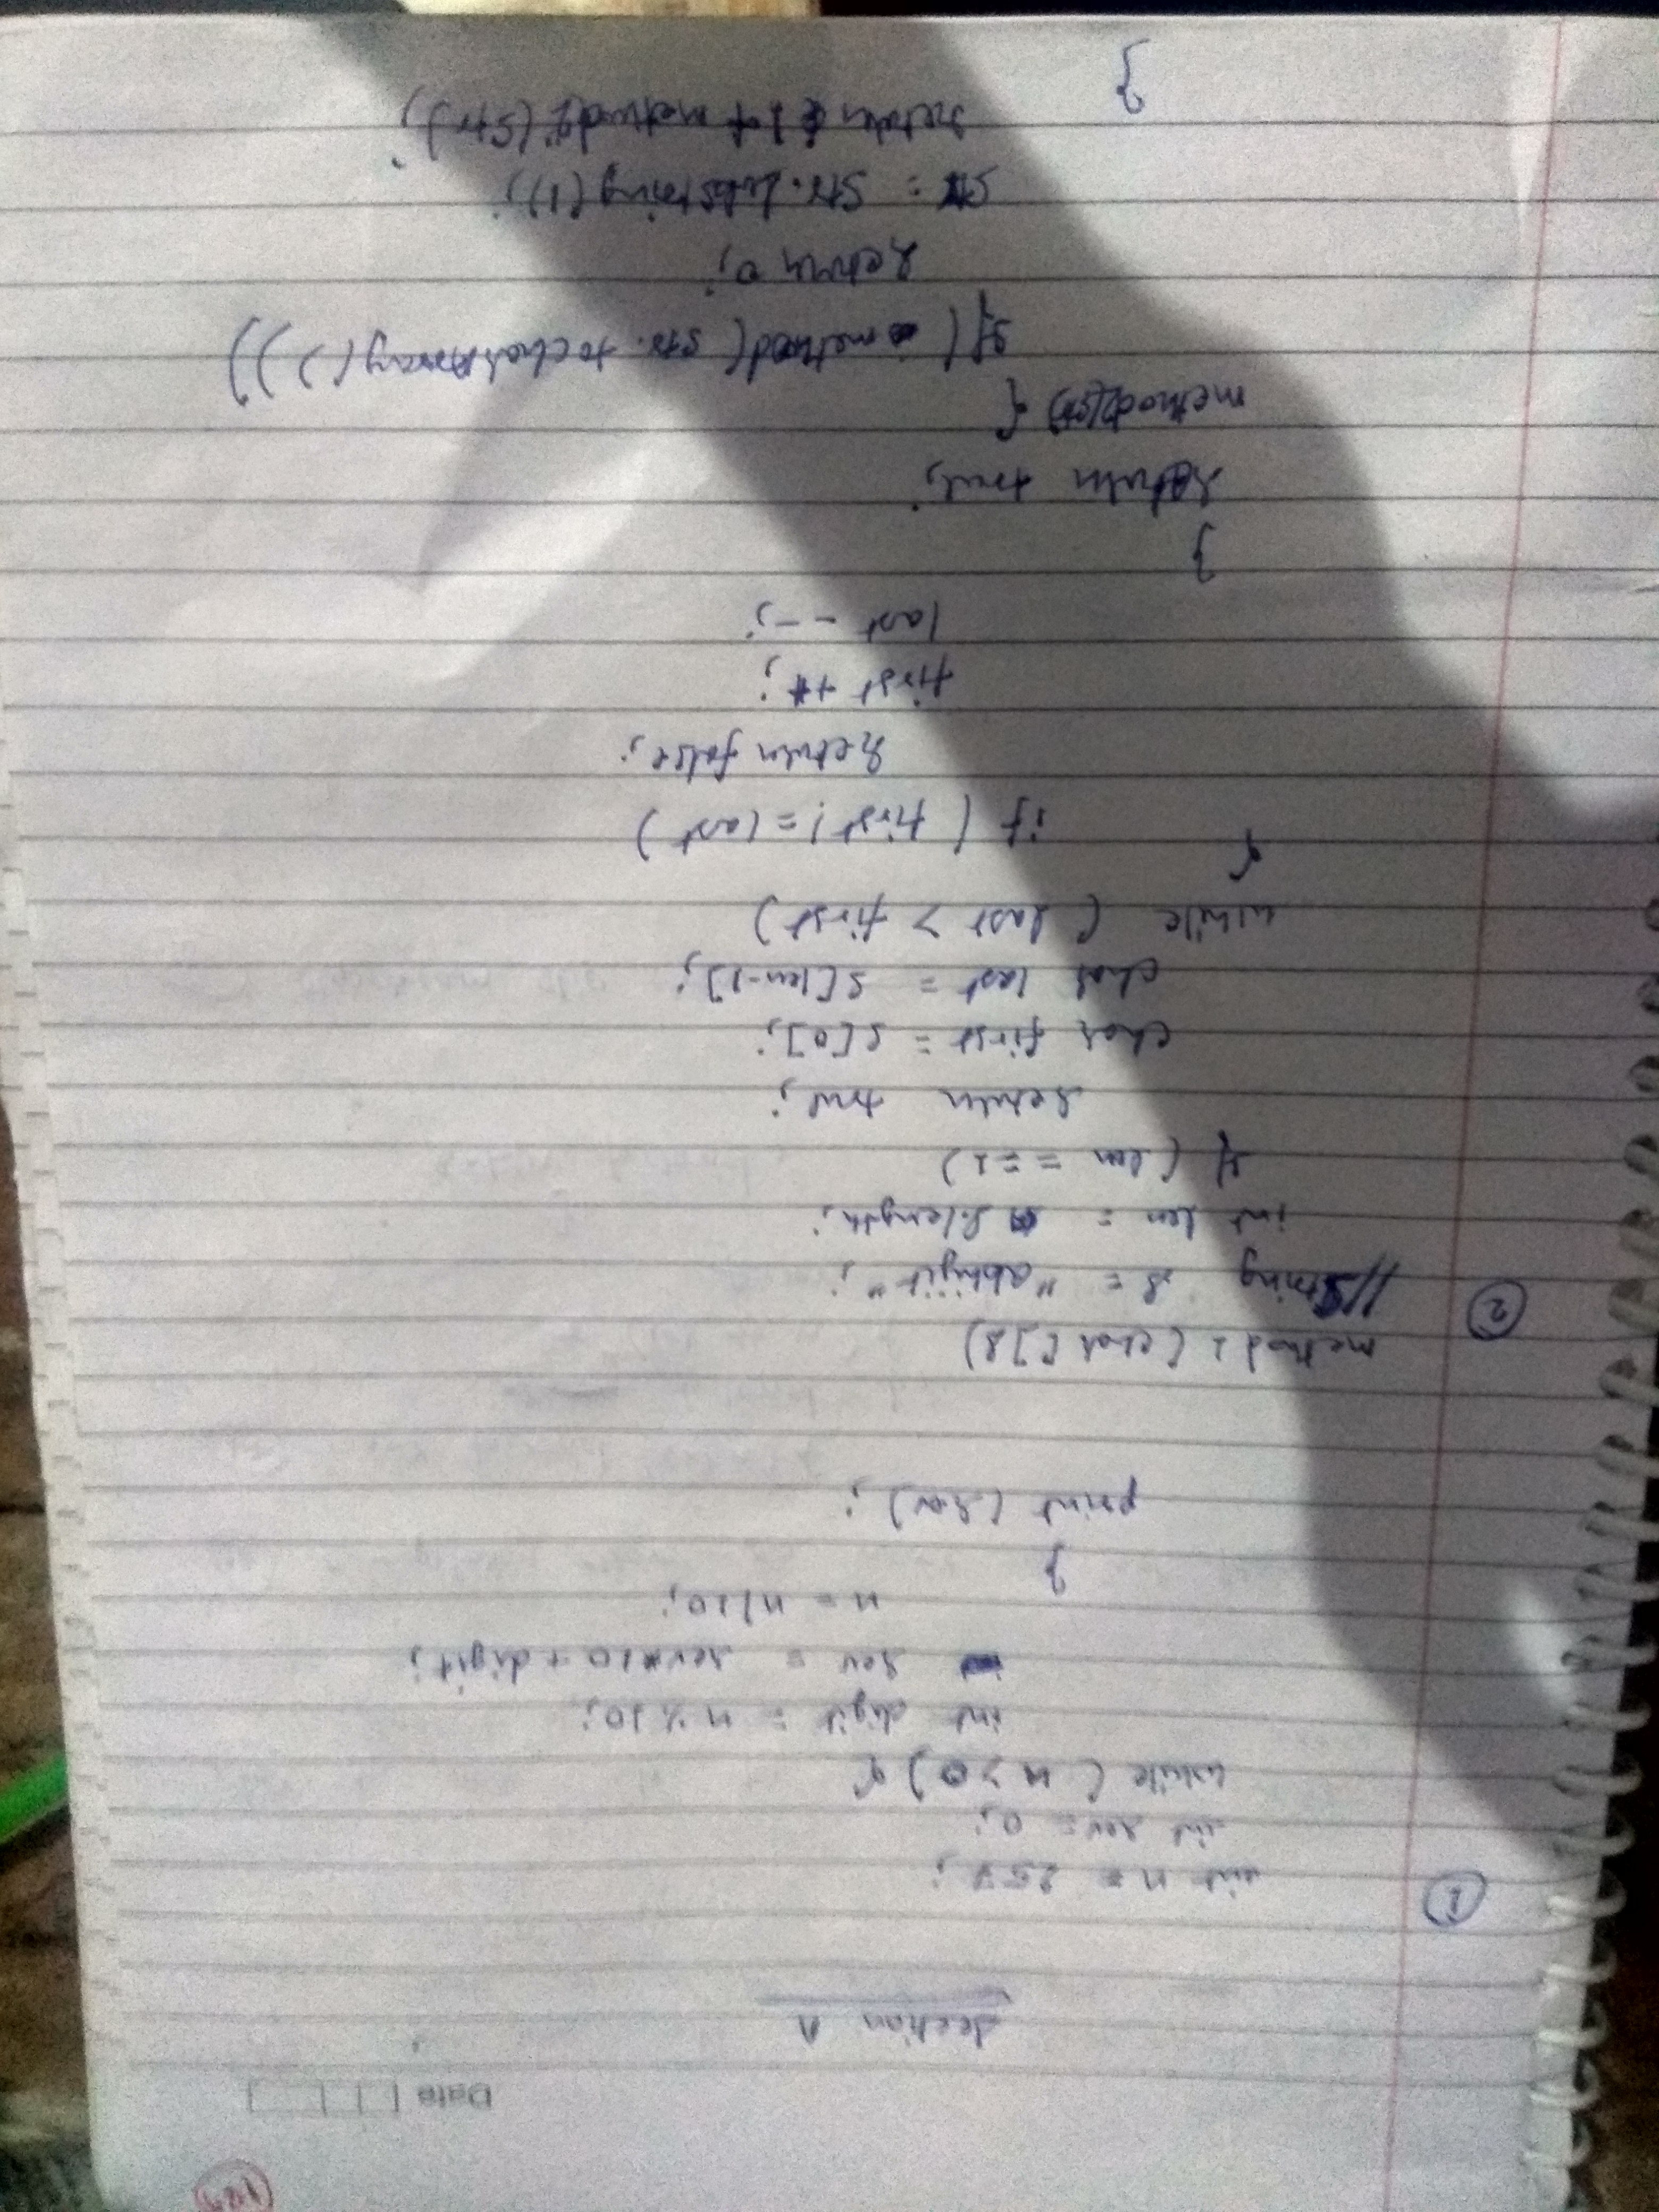 Date
Section A
1
int n = 257;
int rev = 0;
while ( n > 0 ) {
int digit = n % 10;
rev = rev*10 + digit;
n = n/10;
}
print (rev);
method 1 (char [] s)
2
//String s = "abhijit";
int len = s.length;
if (len == 1)
return true;
char first = s[0];
char last = s[len-1];
while ( last > first )
{
if ( first != last )
return false;
first ++;
last --;
}
return true;
method2(str) {
if ( method( str. tocharArray( ) ))
return 0;
str = str.substring(1);
return 1 + method2 (str);
}